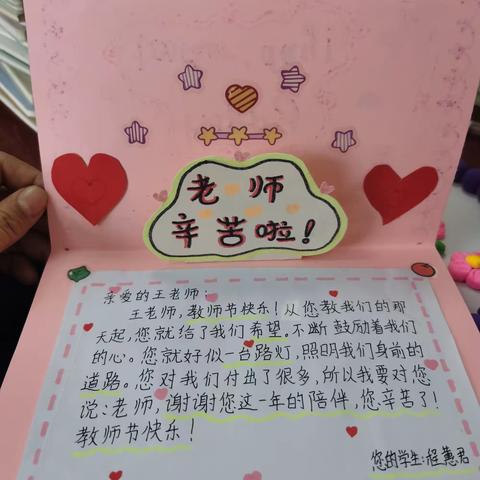 老师
辛苦啦！
亲爱的王老师：
王老师，教师节快乐！从您教我们的那
天起，您就给了我们希望。不断鼓励着我们
的心。您就好似一台路灯，照明我们身前的
道路。您对我们付出了很多，所以我要对您
说：老师，谢谢您这一年的陪伴，您辛苦了！
教师节快乐！
您的学生：程蕙君